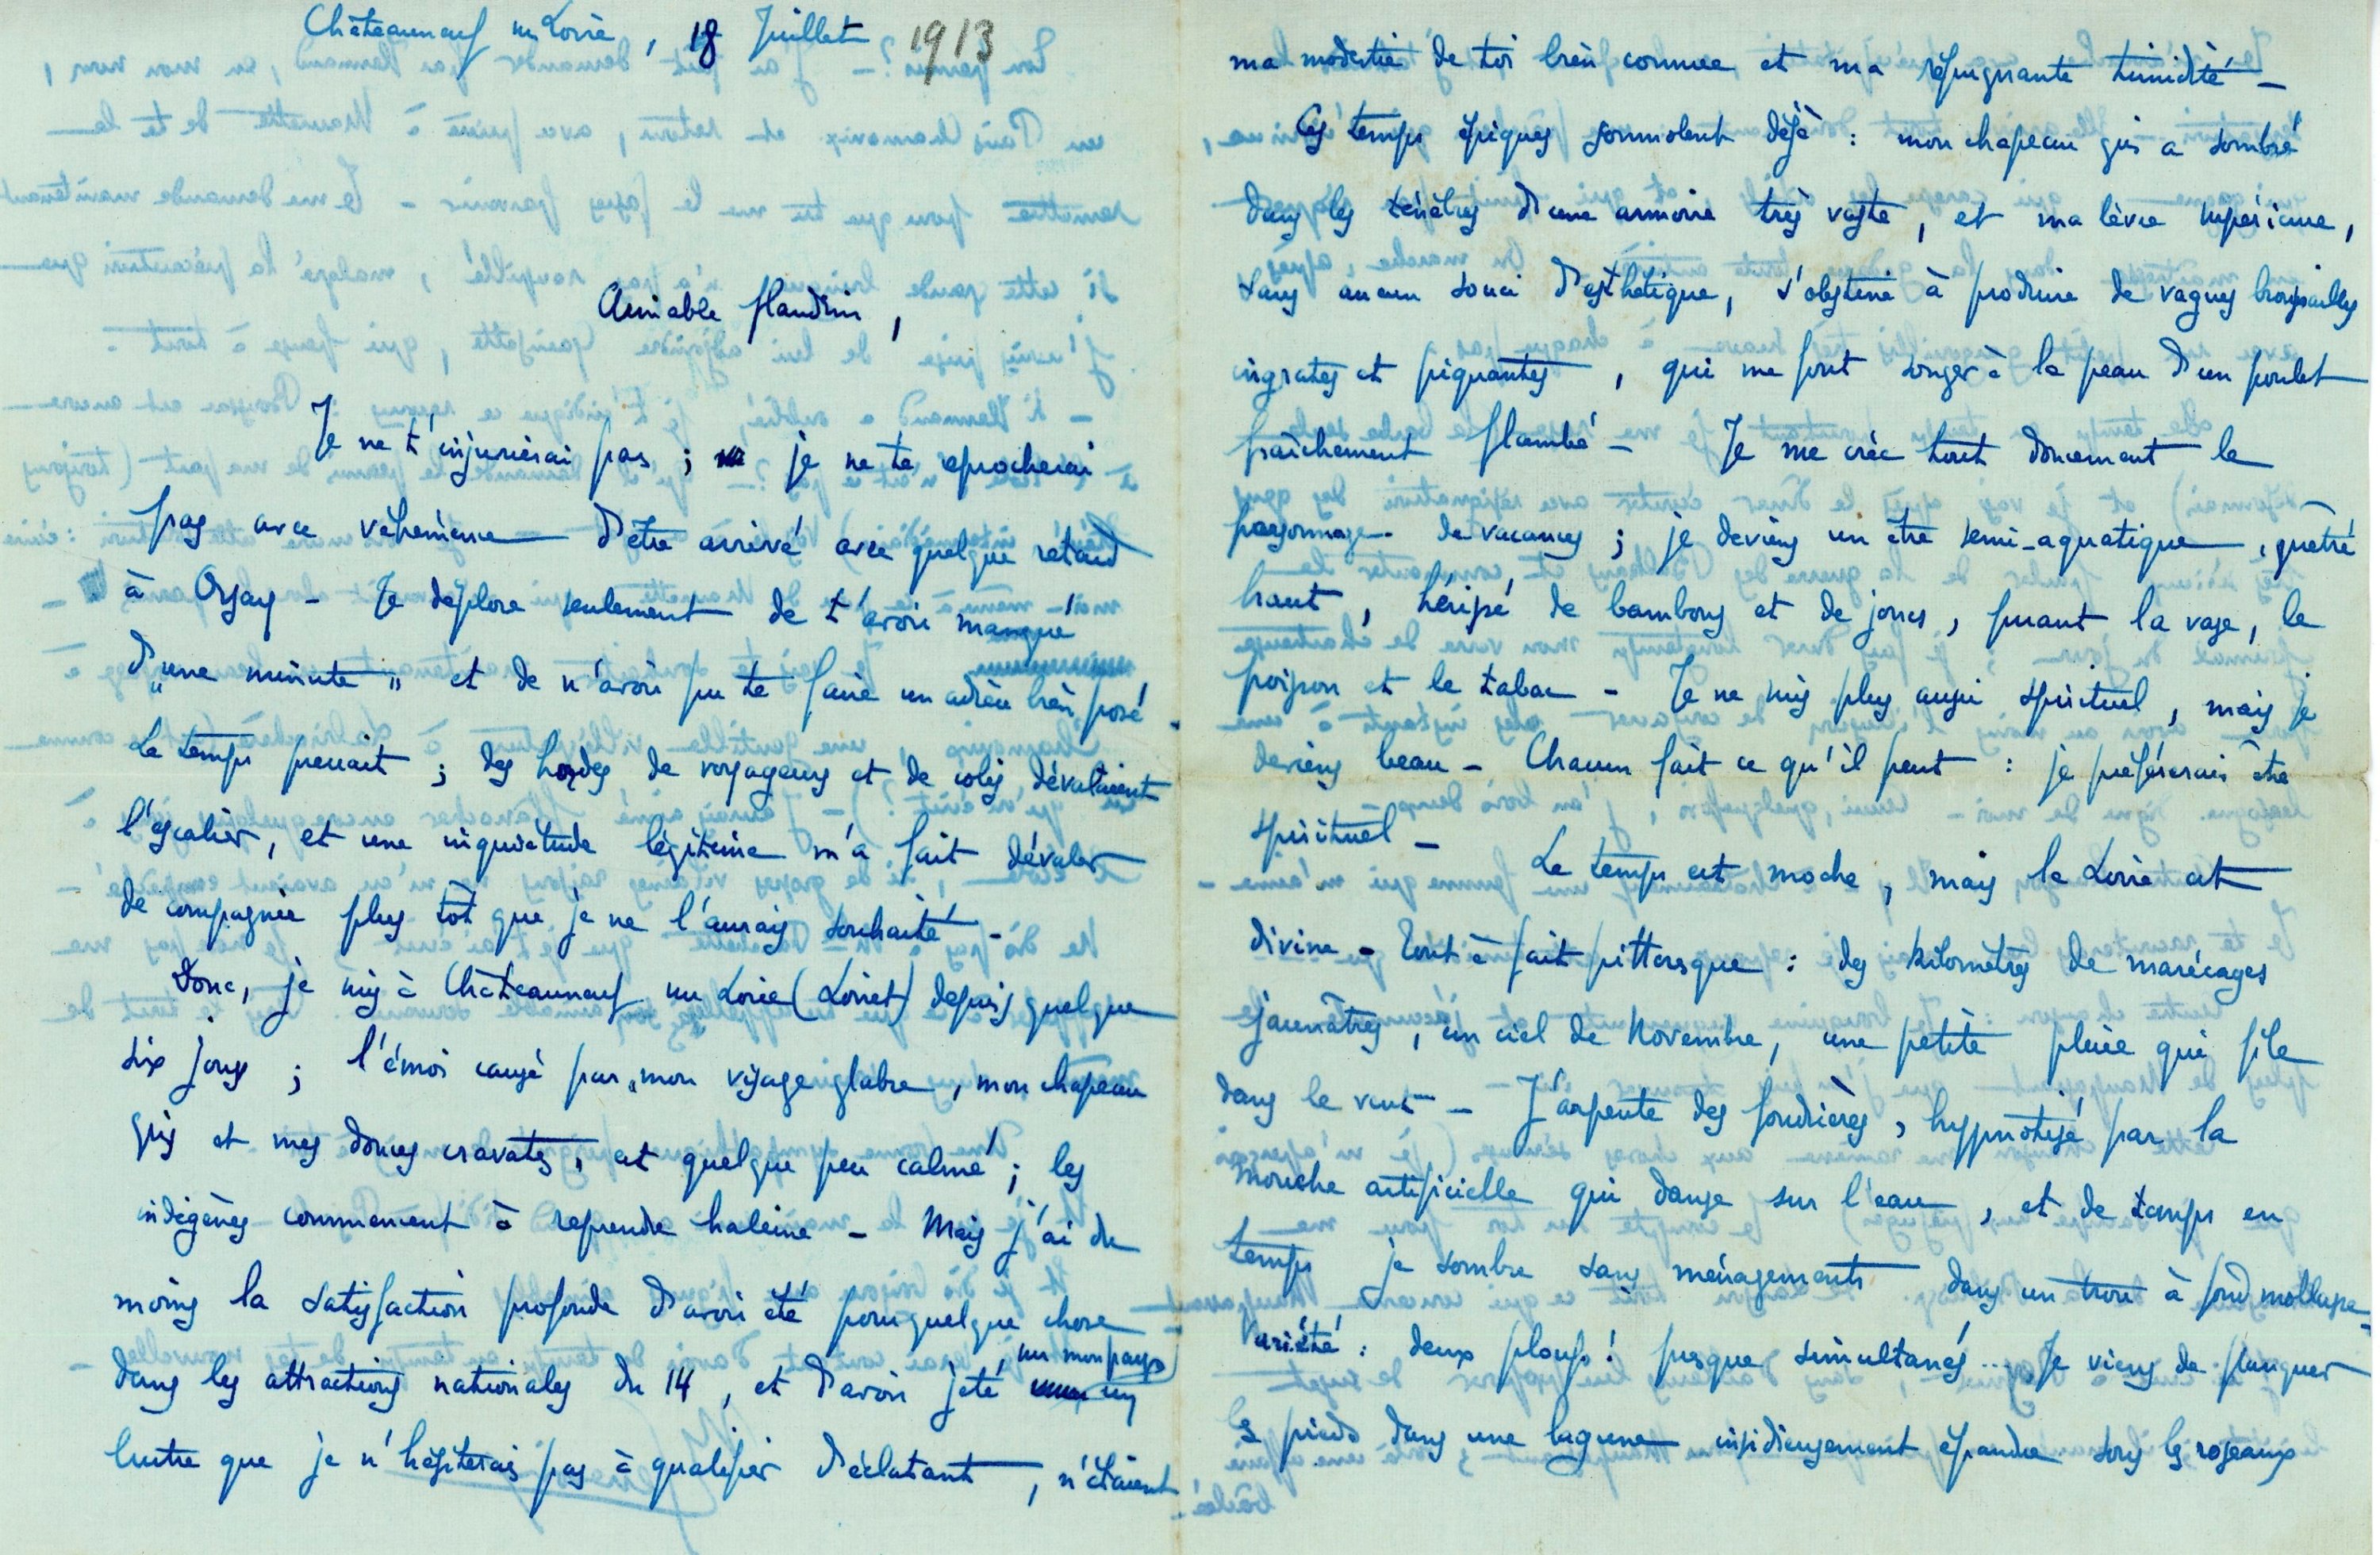 Châteauneuf sur Loire, 18 Juillet 1913
Aimable flandrin,
Je ne t'injurierai pas ; je ne te reprocherai
pas avec véhémence d'être arrivé avec quelque retard
à Orsay – Je déplore seulement de t'avoir manqué
d'"une minute" et de n'avoir pu te faire un adieu bien posé –
Le temps pressait ; des hordes de voyageurs et de colis dévalaient
l'escalier, et une inquiétude légitime m'a fait dévaler
de compagnie plus tôt que je ne l'aurais souhaité –
Donc, je suis à Châteauneuf sur Loire (Loiret) depuis quelque
six jours ; l'émoi causé par mon visage glabre, mon chapeau
gris et mes douces cravates, est quelque peu calmé ; les
indigènes commencent à reprendre haleine – Mais j'ai du
moins la satisfaction profonde d'avoir été pour quelque chose
dans les attractions nationales du 14, et d'avoir jeté, sur mon pays, un
lustre que je n'hésiterais pas à qualifier d'éclatant, n'étaient
ma modestie de toi bien connue et ma répugnante timidité –
Ces temps épiques somnolent déjà : mon chapeau gris a sombré
dans les ténèbres d'une armoire très vaste, et ma lèvre supérieure,
sans aucun souci d'esthétique, s'obstine à produire de vagues broussailles
ingrates et piquantes, qui me font songer à la peau d'un poulet
fraîchement flambé – Je me crée tout doucement le
personnage de vacances ; je deviens un être semi-aquatique, guêtré
haut, hérissé de bambous et de joncs, puant la vase, le
poisson et le tabac – Je ne suis plus aussi spirituel, mais je
deviens beau – Chacun fait ce qu'il peut : je préférerais être
spirituel – Le temps est moche, mais la Loire est
divine – Tout à fait pittoresque : des kilomètres de marécages
jaunâtres, un ciel de Novembre, une petite pluie qui file
dans le vent – J'arpente des fondrières, hypnotisé par la
mouche artificielle qui danse sur l'eau, et de temps en
temps je sombre sans ménagements dans un trou à fond mollusque –
Variété : deux ploufs ! presque simultanés... Je viens de flanquer
les pieds dans une lagune insidieusement épandue sous les roseaux